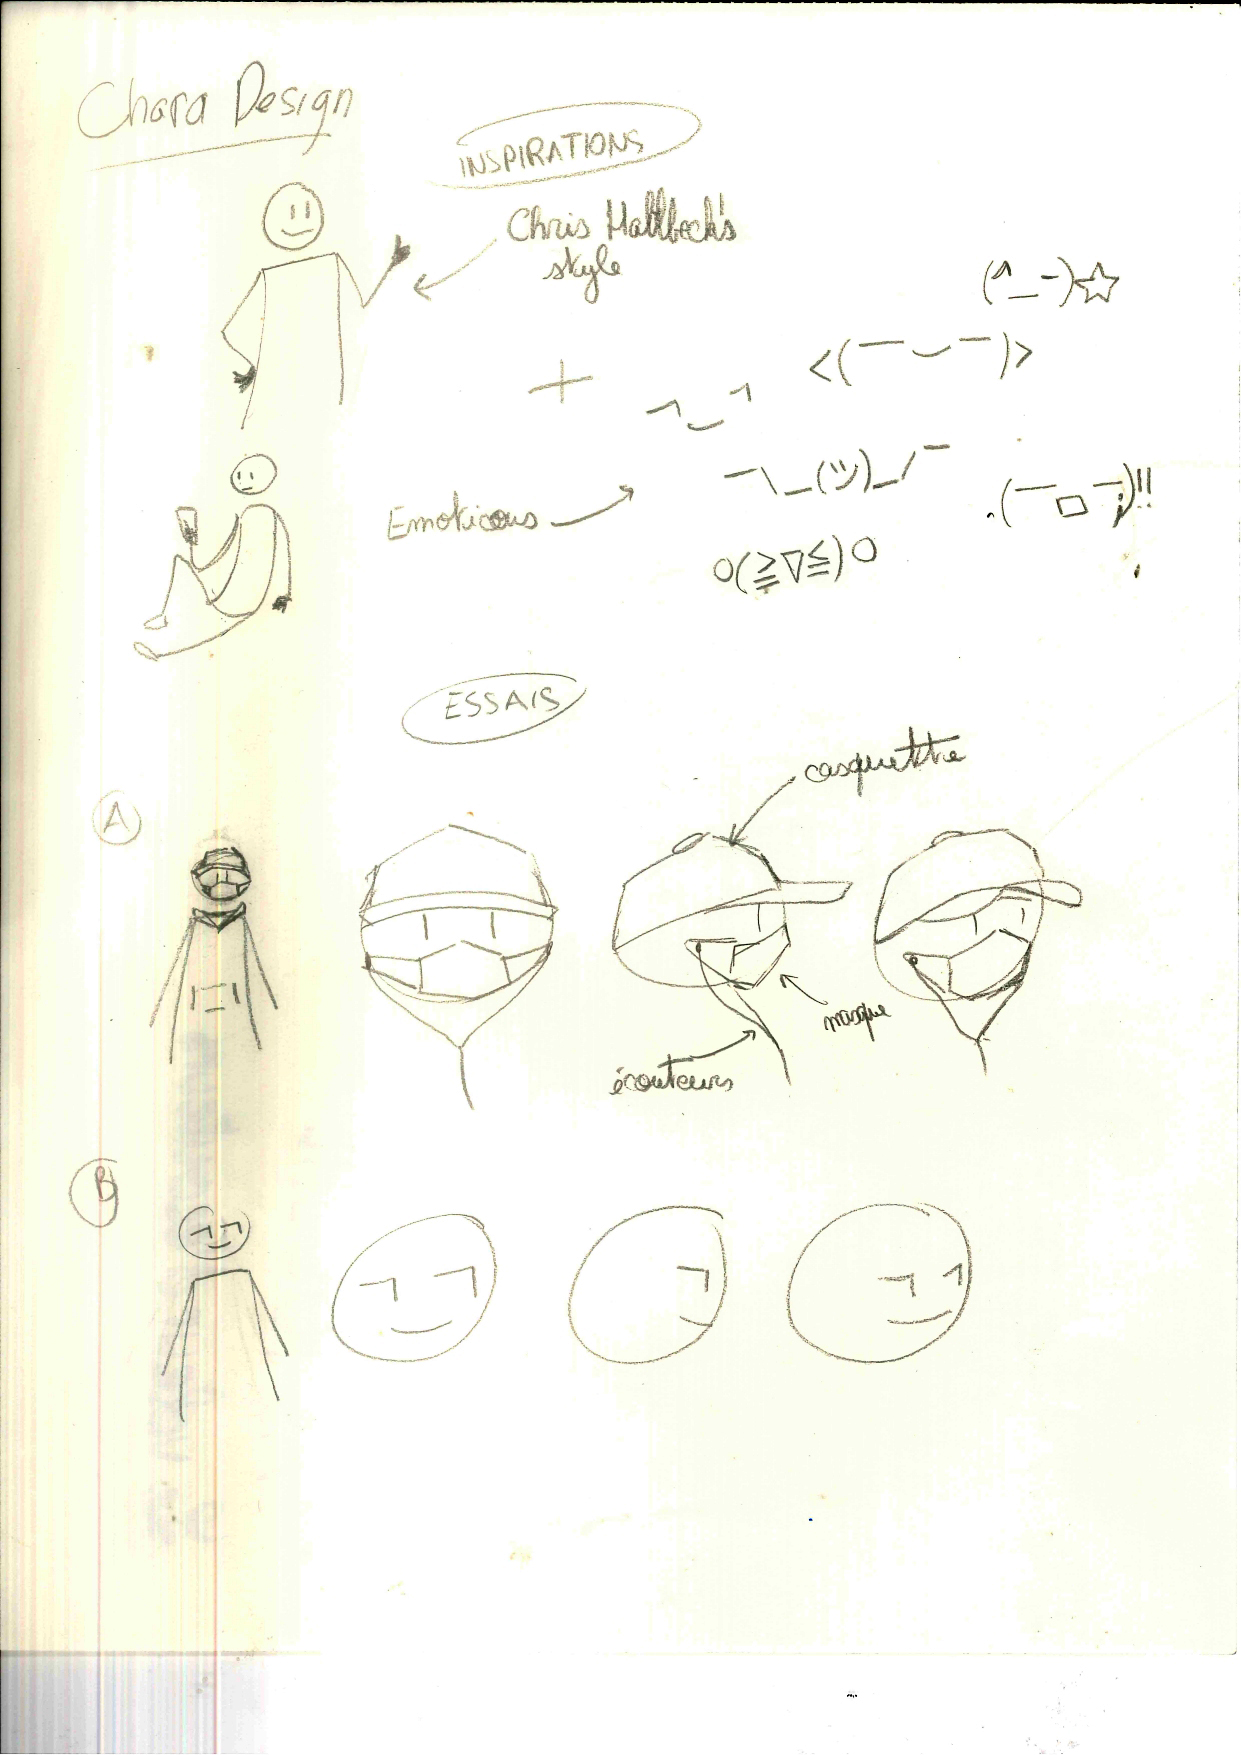 Chara Design
INSPIRATIONS
Chris Hallbeck's
style
(^_-)☆
<(￣‿￣)>
+
¬‿¬
¯\_(ツ)_/¯
Emoticons
(￣□￣;)!!
O(≧▽≦)O
ESSAIS
casquettte
A
masque
écouteurs
B